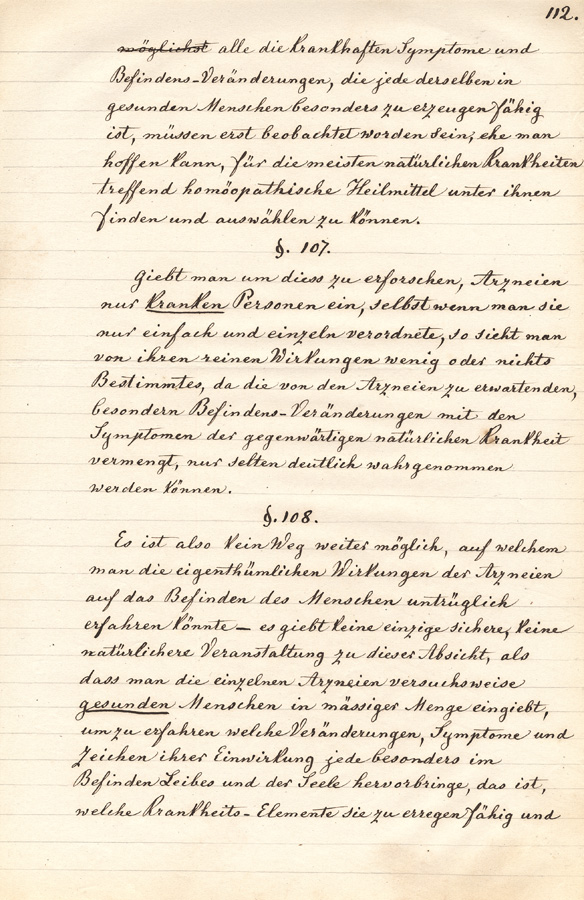 112.
möglichst alle die krankhaften Symptome und
Befindens-Veränderungen, die jede derselben in
gesunden Menschen besonders zu erzeugen fähig
ist, müssen erst beobachtet worden sein, ehe man
hoffen kann, für die meisten natürlichen Krankheiten
treffend homöopathische Heilmittel unter ihnen
finden und auswählen zu können.
§. 107.
Giebt man um diess zu erforschen, Arzneien
nur kranken Personen ein, selbst wenn man sie
nur einfach und einzeln verordnete, so sieht man
von ihren reinen Wirkungen wenig oder nichts
Bestimmtes, da die von den Arzneien zu erwartenden,
besondern Befindens-Veränderungen mit den
Symptomen der gegenwärtigen natürlichen Krankheit
vermengt, nur selten deutlich wahrgenommen
werden können.
§. 108.
Es ist also kein Weg weiter möglich, auf welchem
man die eigenthümlichen Wirkungen der Arzneien
auf das Befinden des Menschen untrüglich
erfahren könnte — es giebt keine einzige sichere, keine
natürlichere Veranstaltung zu dieser Absicht, als
dass man die einzelnen Arzneien versuchsweise
gesunden Menschen in mässiger Menge eingiebt,
um zu erfahren welche Veränderungen, Symptome und
Zeichen ihrer Einwirkung jede besonders im
Befinden Leibes und der Seele hervorbringe, das ist,
welche Krankheits-Elemente sie zu erregen fähig und